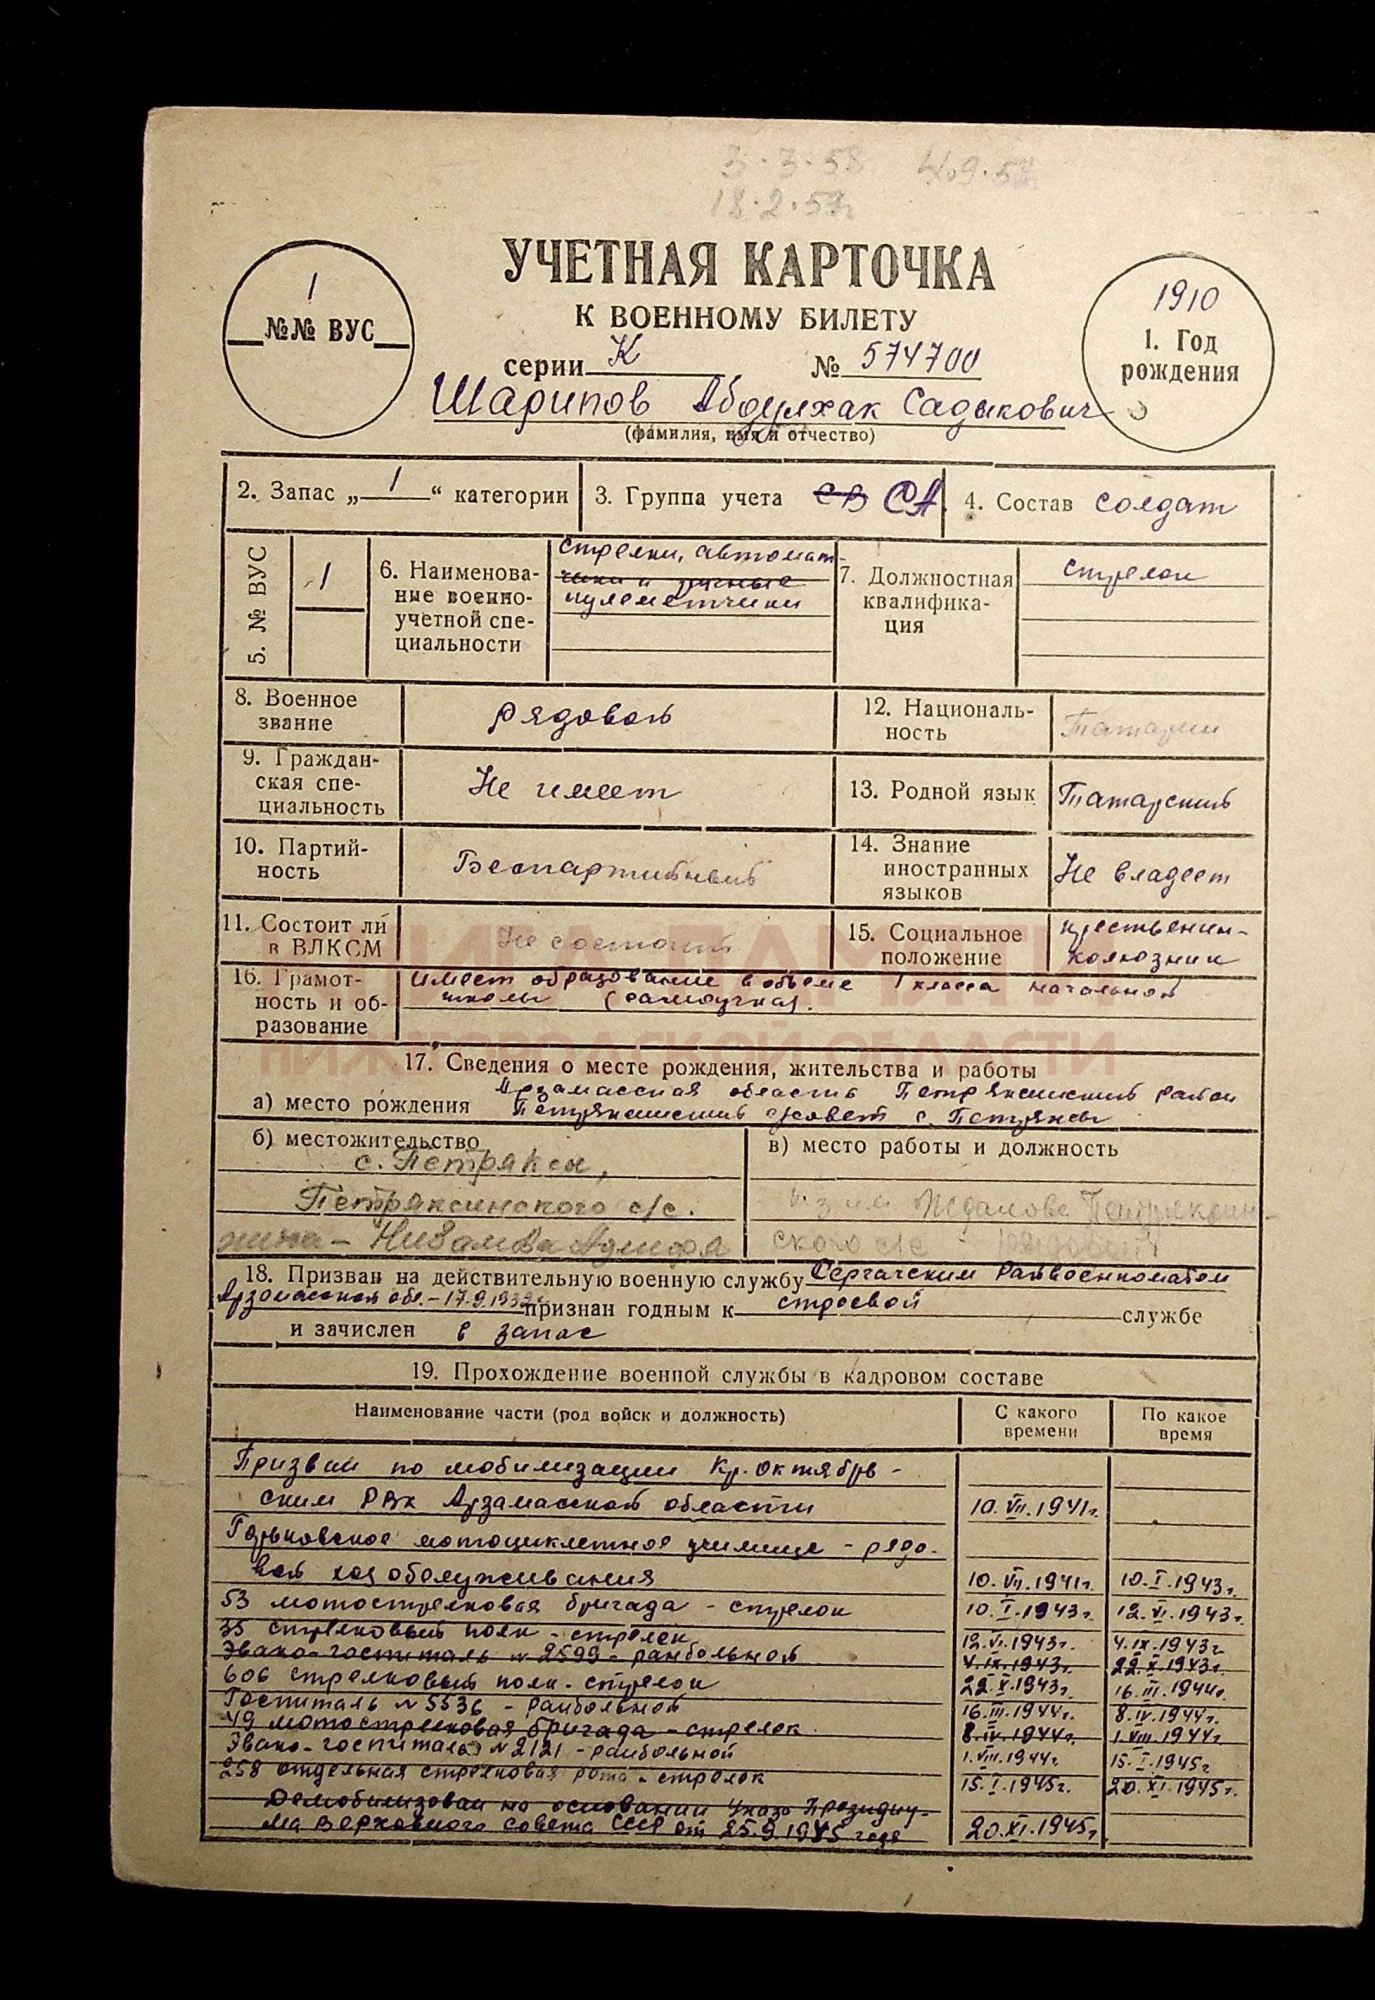 3.3.58 4.9.58
18.2.59г
УЧЕТНАЯ КАРТОЧКА
К ВОЕННОМУ БИЛЕТУ
1
№№ ВУС
серии К № 574700
1910
1. Год рождения
Шарипов Абдулхак Садыкович
(фамилия, имя и отчество)
2. Запас „ 1 “ категории
3. Группа учета СВ СА
4. Состав солдат
5. № ВУС
1
6. Наименова-
ние военно-
учетной спе-
циальности
Стрелки, автомат-
чики и ручные
пулеметчики
7. Должностная
квалифика-
ция
стрелок
8. Военное
звание
рядовой
12. Националь-
ность
Татарин
9. Граждан-
ская спе-
циальность
Не имеет
13. Родной язык
Татарский
10. Партий-
ность
Беспартийный
14. Знание
иностранных
языков
Не владеет
11. Состоит ли
в ВЛКСМ
Не состоит
15. Социальное
положение
крественин-
колхозник
КНИГА ПАМЯТИ
НИЖЕГОРОДСКОЙ ОБЛАСТИ
16. Грамот-
ность и об-
разование
Имеет образование в объеме 1 класса начальной
школы (самоучка).
17. Сведения о месте рождения, жительства и работы
а) место рождения
Арзамасская область Петряксинский район
Петряксинский с/совет с. Петряксы
б) местожительство
с. Петряксы,
Петряксинского с/с.
жена – Низамова
в) место работы и должность
к-з им Жданова Петряксин-
ского с/с рядовой
18. Призван на действительную военную службу Сергачским Райвоенкоматом
Арзамасской обл. – 17.9.1932г признан годным к строевой службе
и зачислен в запас
19. Прохождение военной службы в кадровом составе
Наименование части (род войск и должность)
С какого
времени
По какое
время
Призван по мобилизации Кр. Октябрь-
ским РВК Арзамасской области 10.VII.1941г.
Горьковское мотоциклетное училище - рядо-
вой хоз обслуживания 10.VII.1941г. 10.I.1943г.
53 мотострелковая бригада - стрелок 10.I.1943г. 12.VI.1943г.
35 стрелковый полк - стрелок 12.VI.1943г. 4.IX.1943г
Эвако-госпиталь № 2599 - ранбольной 4.IX.1943г. 22.X.1943г.
606 стрелковый полк - стрелок 22.X.1943г. 16.III.1944г.
Госпиталь № 5536 - ранбольной 16.III.1944г. 8.IV.1944г.
49 мотострелковая бригада - стрелок 8.IV.1944г. 1.VIII.1944г
Эвако-госпиталь № 2121 - ранбольной 1.VIII.1944г. 15.I.1945г
258 отдельная стрелковая рота - стрелок 15.I.1945г. 20.XI.1945г.
Демобилизован на основании Указа Президиу-
ма Верховного совета СССР от 25.9.1945 года 20.XI.1945г.